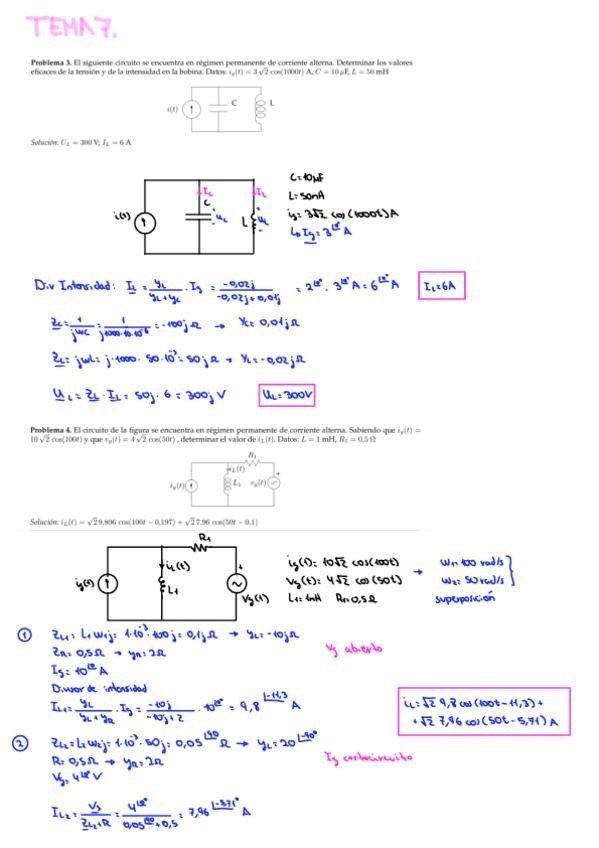 TEMA 7.
Problema 3. El siguiente circuito se encuentra en régimen permanente de corriente alterna. Determinar los valores
eficaces de la tensión y de la intensidad en la bobina. Datos: i_g(t) = 3 √2 cos(1000t) A, C = 10 μF, L = 50 mH
i(t)
C
L
Solución: U_L = 300 V; I_L = 6 A
C=10μF
L=50mH
i_g=3√2 cos(1000t)A
↳ I_g=3^∠0° A
i(t)
I_C
C
u_C
I_L
L
u_L
Div Intensidad: I_L = Y_L/(Y_L+Y_C) · I_g = -0,02j/(-0,02j+0,01j) = 2^∠0° · 3^∠0° A = 6^∠0° A
I_L=6A
Z_C = 1/(jωC) = 1/(j1000·10·10⁻⁶) = -100j Ω → Y_C = 0,01j Ω
Z_L = jωL = j·1000·50·10⁻³ = 50j Ω → Y_L = -0,02j Ω
U_L = Z_L · I_L = 50j · 6 = 300j V
U_L=300V
Problema 4. El circuito de la figura se encuentra en régimen permanente de corriente alterna. Sabiendo que i_g(t) =
10 √2 cos(100t) y que v_g(t) = 4 √2 cos(50t) , determinar el valor de i_L(t). Datos: L = 1 mH, R₁ = 0,5 Ω
R₁
i_L(t)
i_g(t)
L₁
v_g(t)
+
Solución: i_L(t) = √2 9,806 cos(100t − 0,197) + √2 7,96 cos(50t − 0,1)
R₁
i_g(t)
i_L(t)
L₁
+
V_g(t)
i_g(t): 10√2 cos(100t)
V_g(t): 4√2 cos(50t)
L₁=1mH R₁=0,5Ω
→
ω₁=100 rad/s
ω₂=50 rad/s
superposición
① Z_L1 = L₁ω₁j = 1·10⁻³·100j = 0,1j Ω → Y_L = -10j Ω
Z_R = 0,5Ω → Y_R = 2Ω
V_g abierto
I_g = 10^∠0° A
Divisor de intensidad
I_L1 = Y_L/(Y_L+Y_R) · I_g = -10j/(-10j+2) · 10^∠0° = 9,8^∠-11,3 A
i_L = √2 9,8 cos(100t-11,3)+
+√2 7,96 cos(50t-5,71) A
② Z_L2 = L₂ω₂j = 1·10⁻³·50j = 0,05^∠90 Ω → Y_L = 20^∠-90°
R = 0,5Ω → Y_R = 2Ω
I_g cortocircuito
V_g = 4^∠0° V
I_L2 = V_g/(Z_L2+R) = 4^∠0°/(0,05^∠90+0,5) = 7,96^∠-5,71° A